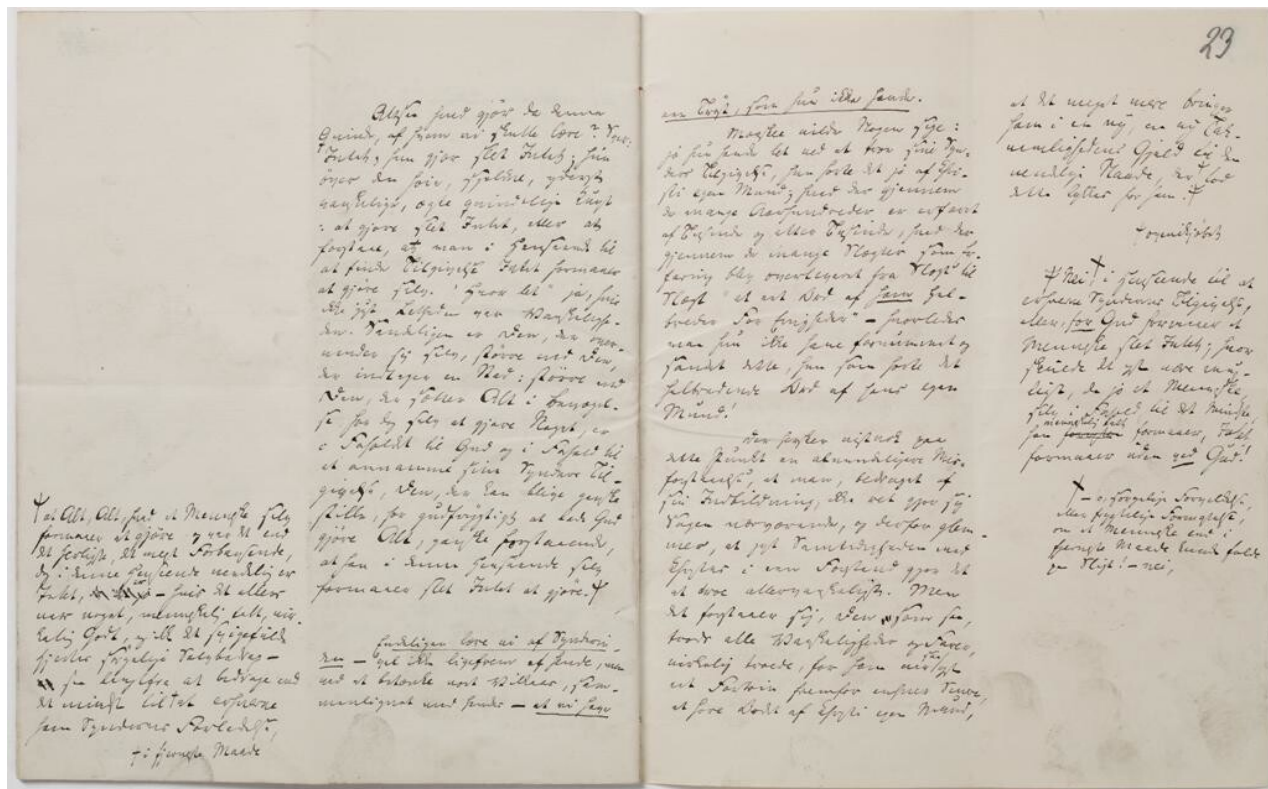 at Alt, Alt, hvad et Menneske selv
formaaer at gjøre og var det end
det herligste, det meest Forbausende,
dog i denne Henseende uendelig er
Intet, – hvis det ellers
var noget, menneskelig talt, vir-
kelig Godt, og ikke det sørgeligste
Selvbedrag –
saa langtfra at bidrage end
det mindste til at erhverve
ham Syndernes Forladelse,
i fjerneste Maade
Altsaa hvad gjør da denne
Qvinde, af hvem vi skulle lære? Svar:
Intet, hun gjør slet Intet; hun
øver den høie, sjeldne, yderst
vanskelige, ægte qvindelige Kunst
: at gjøre slet Intet, eller at
forstaae, at man i Henseende til
at finde Tilgivelse Intet formaaer
at gjøre selv. "Hvor let" ja, hvis
ikke just Letheden var Vanskelighe-
den. Sandeligen er Den, der over-
vinder sig selv, større end Den,
der indtager en Stad: større end
Den, der sætter Alt i Bevægel-
se for dog selv at gjøre Noget, er
i Forholdet til Gud og i Forhold til
at annamme sine Synders Til-
givelse, Den, der kan blive ganske
stille, for gudfrygtigt at lade Gud
gjøre Alt, ganske forstaaende,
at han i denne Henseende selv
formaaer slet Intet at gjøre.
Endeligen lære vi af Synderin-
den – vel ikke ligefrem af hende, men
ved at betænke vort Vilkaar, sam-
menlignet med hendes – at vi have
23
en Trøst, som hun ikke havde.
Maaskee vilde Nogen sige:
ja hun havde let ved at troe sine Syn-
ders Tilgivelse, hun hørte det jo af Chri-
sti egen Mund; hvad der gjennem
de mange Aarhundreder er erfaret
af Tusinde og atter Tusinde, hvad der
gjennem de mange Slægter som Er-
faring blev overleveret fra Slægt til
Slægt "at eet Ord af ham hel-
breder for Evigheden" – hvorledes
maa hun ikke have fornummet og
sandet dette, hun som hørte det
helbredende Ord af hans egen
Mund!
Der hersker vistnok paa
dette Punkt en almindeligere Mis-
forstaaelse, at man, bedraget af
sin Indbildning, ikke ret gjør sig
Sagen nærværende, og derfor glem-
mer, at just Samtidigheden med
Christus i een Forstand gjør det
at troe allervanskeligst. Men
det forstaaer sig, Den som saa,
trods alle Vanskeligheder og Farer,
virkelig troede, har han vistnok
eet Fortrin fremfor enhver Senere,
at høre Ordet af Christi egen Mund,
at det meget mere bringer
ham i en ny, en ny Tak-
nemlighedens Gjeld til den
uendelige Naade, der lod
dette lykkes for ham.
Nei i Henseende til at
erhverve Syndernes Tilgivelse,
eller for Gud formaaer et
Menneske slet Intet; hvor
skulde det og være mu-
ligt, da jo et Menneske,
selv i Forhold til det Mindste,
han menneskelig talt formaaer, Intet
formaaer uden ved Gud!
– o, sørgelige Forvexling,
eller frygtelige Formastelse,
om et Menneske end i
fjerneste Maade kunde falde
paa Sligt! – nei,